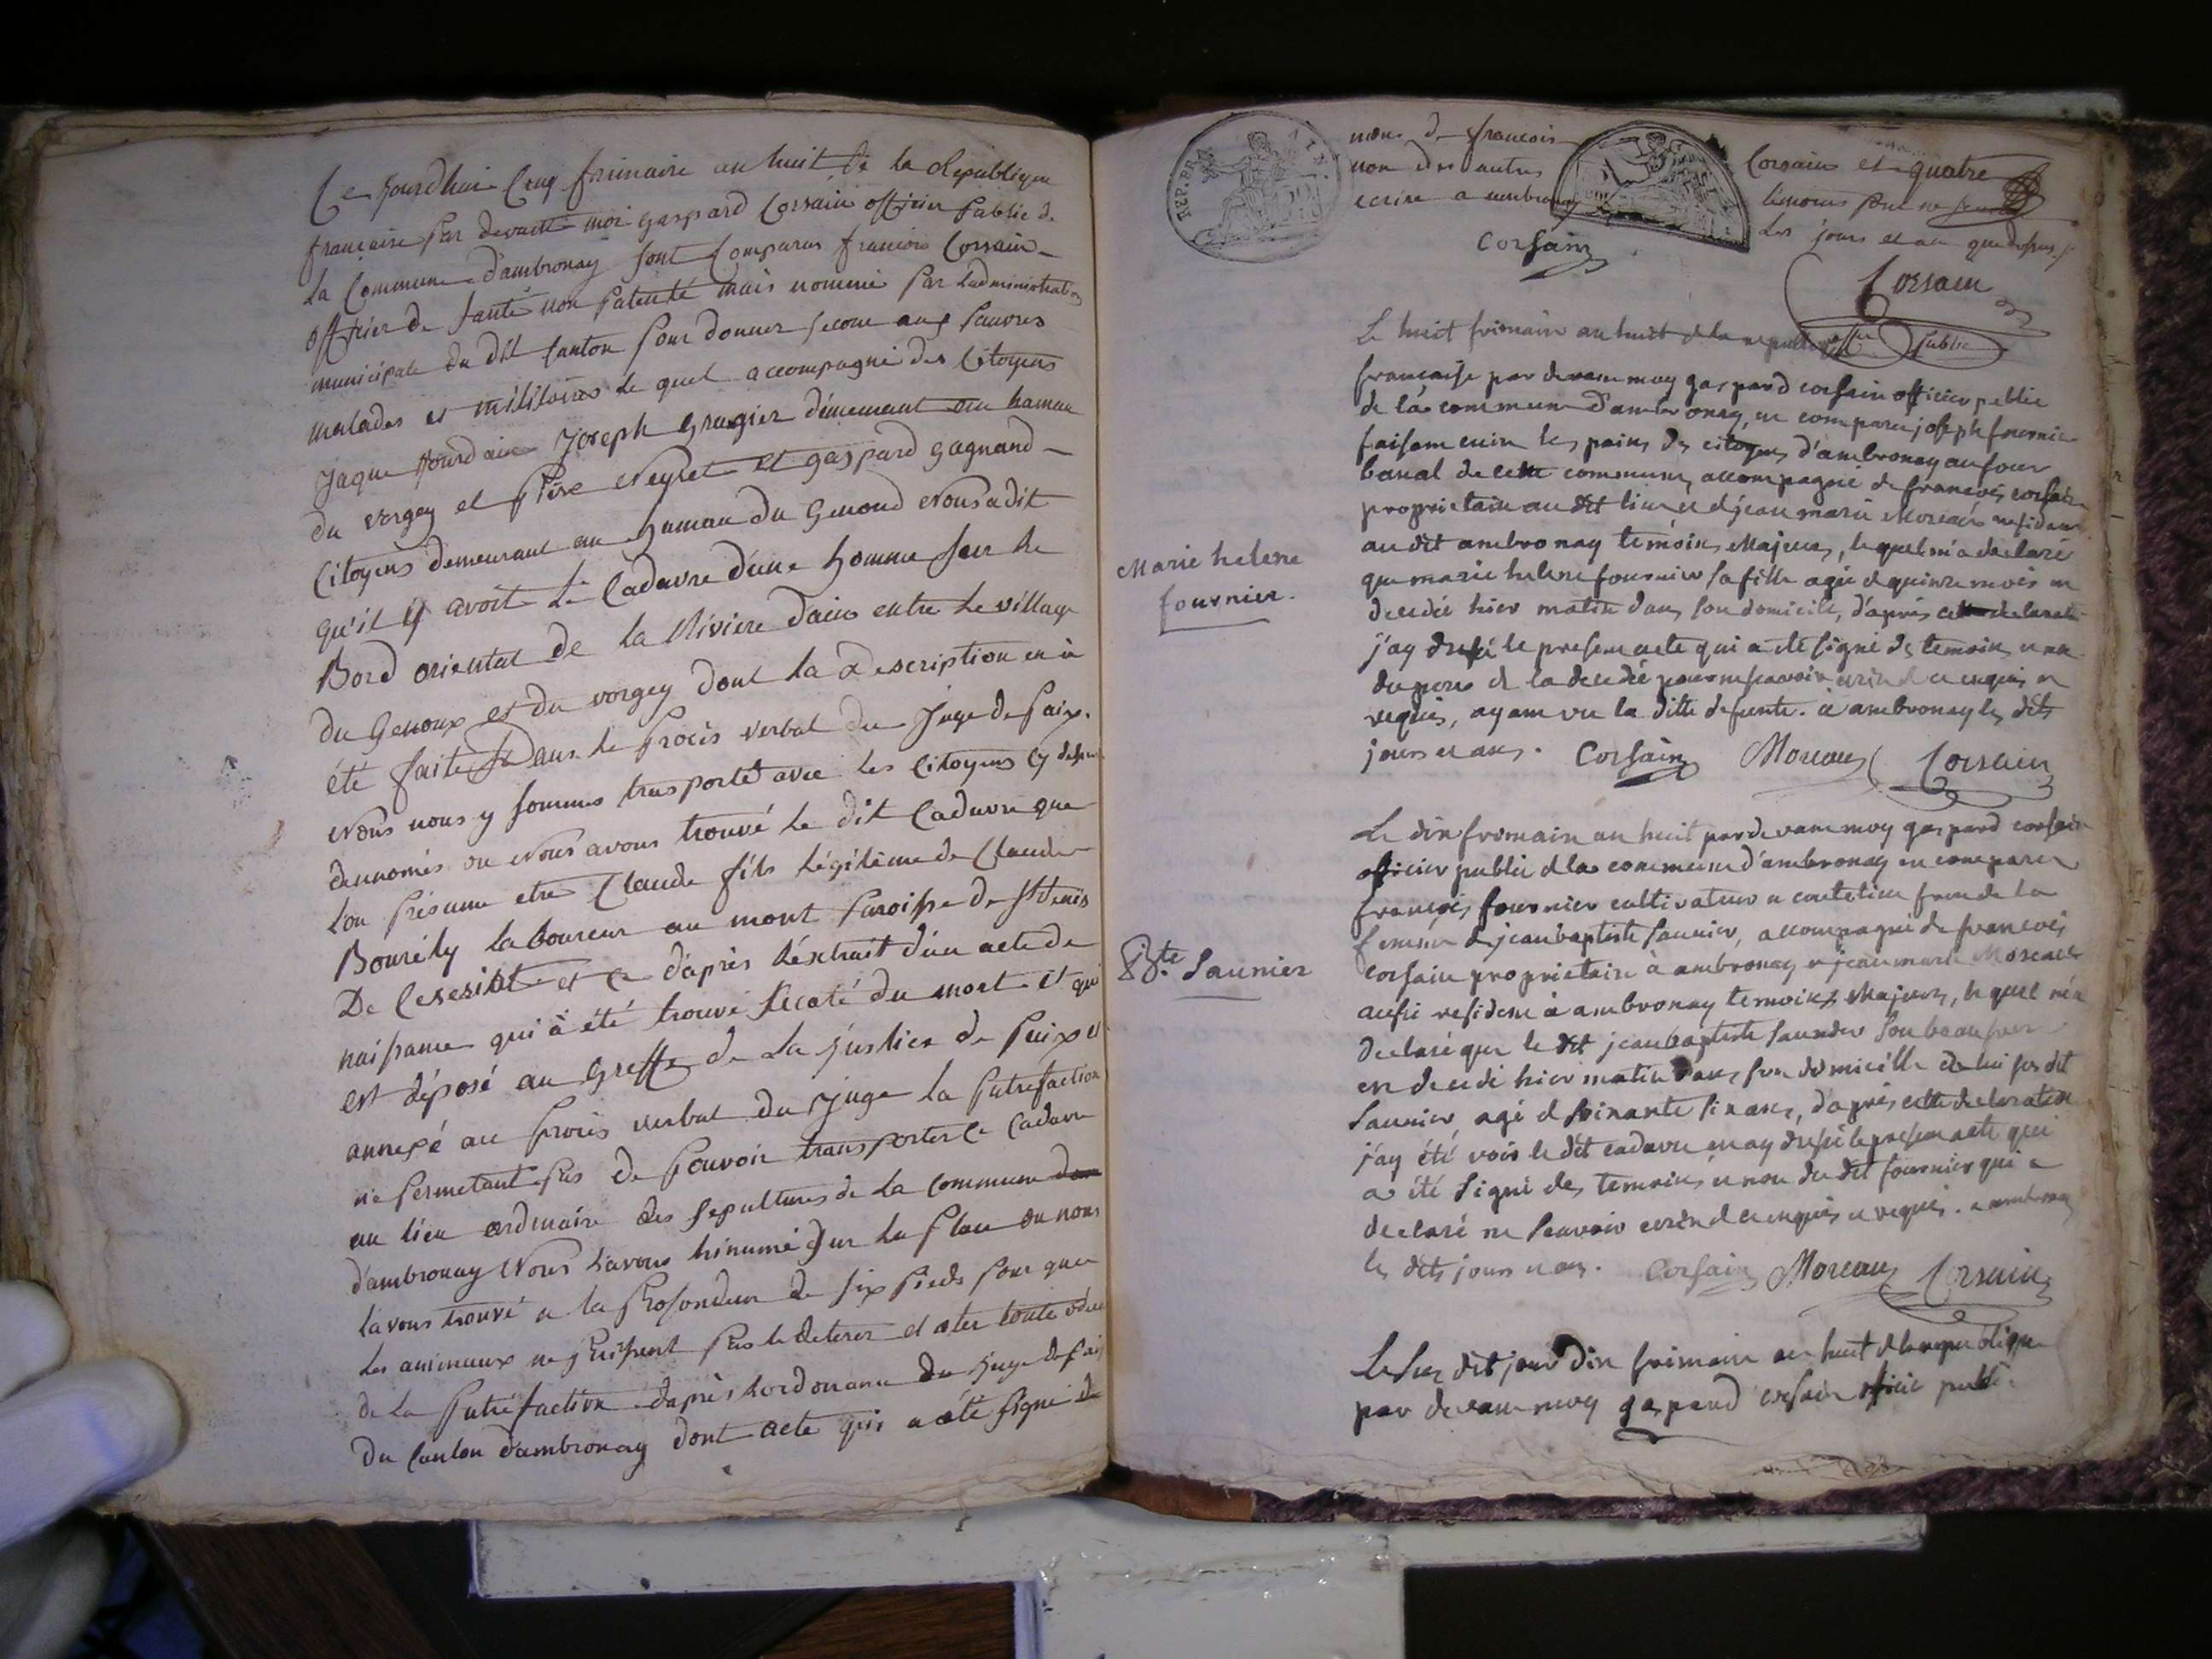 Ce Jourdhui Cinq frimaire an huit de la Republique
française Par devant moi gaspard Corsain officier Public de
La Commune d'ambronay sont Comparus francois Corsain
officier de santé non Patenté mais nommé Par Ladministration
municipale du dit Canton Pour donner secour aux Pauvres
malades et militaires le quel accompagné des Citoyens
Jaque Jourdain Joseph grugier demeurant au hamau
du vorgey et Neyret et gaspard gagnand
Citoyens demeurant au hamau du Genoud Nous a dit
qu'il y avoit le Cadavre d'une homme sur le
Bord oriental de la Riviere dains entre le village
du Genoux et du vorgey dont la description en a
été faite Dans le Procès verbal du Juge de Paix.
Nous nous y sommes trasporté avec les Citoyens Cy dessu
denomés ou Nous avons trouvé le dit Cadavre que
Lon Présume etre Claude fils Légitime de Claude
Bouvély laboureur au mont Paroisse de St denis
De et Ce d'après L'éxtrait d'un acte de
naissance qui à été trouvé a coté du mort et qui
est déposé au Greffe de La justice de Paix et
annexé au Procès verbal du Juge la Putrefaction
ne Permetant Pas de Pouvoir transporter Ce Cadavre
au lieu ordinaire des sepultures de la Commune
d'ambronay Nous L'avons hinumé sur La Place ou nous
Lavons trouvé a la Profondeur de six Pieds Pour que
Les animaux ne Puissent Pas le deterer et oter toute odeur
de La Putréfaction daprès Lordonance du Juge de Paix
Du Canton d'ambronay dont acte qui a été signé de
nous de francois Corsain et quatre
non des autres temoins Pour ne
ecrire a ambronay Les jours et an que dessus
REP. FRA.
Corsain
Corsain
offier Public
Le huit frimaire an huit de la republique
francaise par devant moy gaspard corsain officier public
de la commune d'ambronay, est comparu joseph fournier
faisant cuire les pains des citoyens d'ambronay au four
banal de cette commune, accompagné de francois corsain
proprietaire au dit lieu et de jean marie Moreau residant
au dit ambronay temoins Majeurs, lequel m'a déclaré
que marie helene fournier sa fille agée de quinze mois est
decedée hier matin dans son domicile, d'après cette declaration
j'ay dressé le present acte qui a été signé des temoins et non
du pere de la decedée pour ne scavoir ecrire de ce enquis et
requis, ayant vu la ditte defunte. à ambronay les dits
jours et ans. Corsain Moreau Corsain
Marie helene
fournier.
Le dix frimaire an huit par devant moy gaspard corsain
officier public de la commune d'ambronay est comparu
francois fournier cultivateur a
de jean baptiste saunier, accompagné de francois
corsain proprietaire à ambronay et jean marie Moreau
aussi residant à ambronay temoins Majeurs, lequel m'a
declaré que le dit jean baptiste saunier son beau frere
est decedé hier matin dans son domicille de lui susdit
saunier, agé de soixante six ans, d'après cette declaration
j'ay été voir le dit cadavre et ay dressé le present acte qui
a été signé des temoins et non du dit fournier qui a
declaré ne scavoir ecrire de ce enquis et requis. a ambronay
les dits jours et an. Corsain Moreau Corsain
Bte. Saunier
Le sus dit jour dix frimaire an huit de la republique
par devant moy gaspard corsain officier public